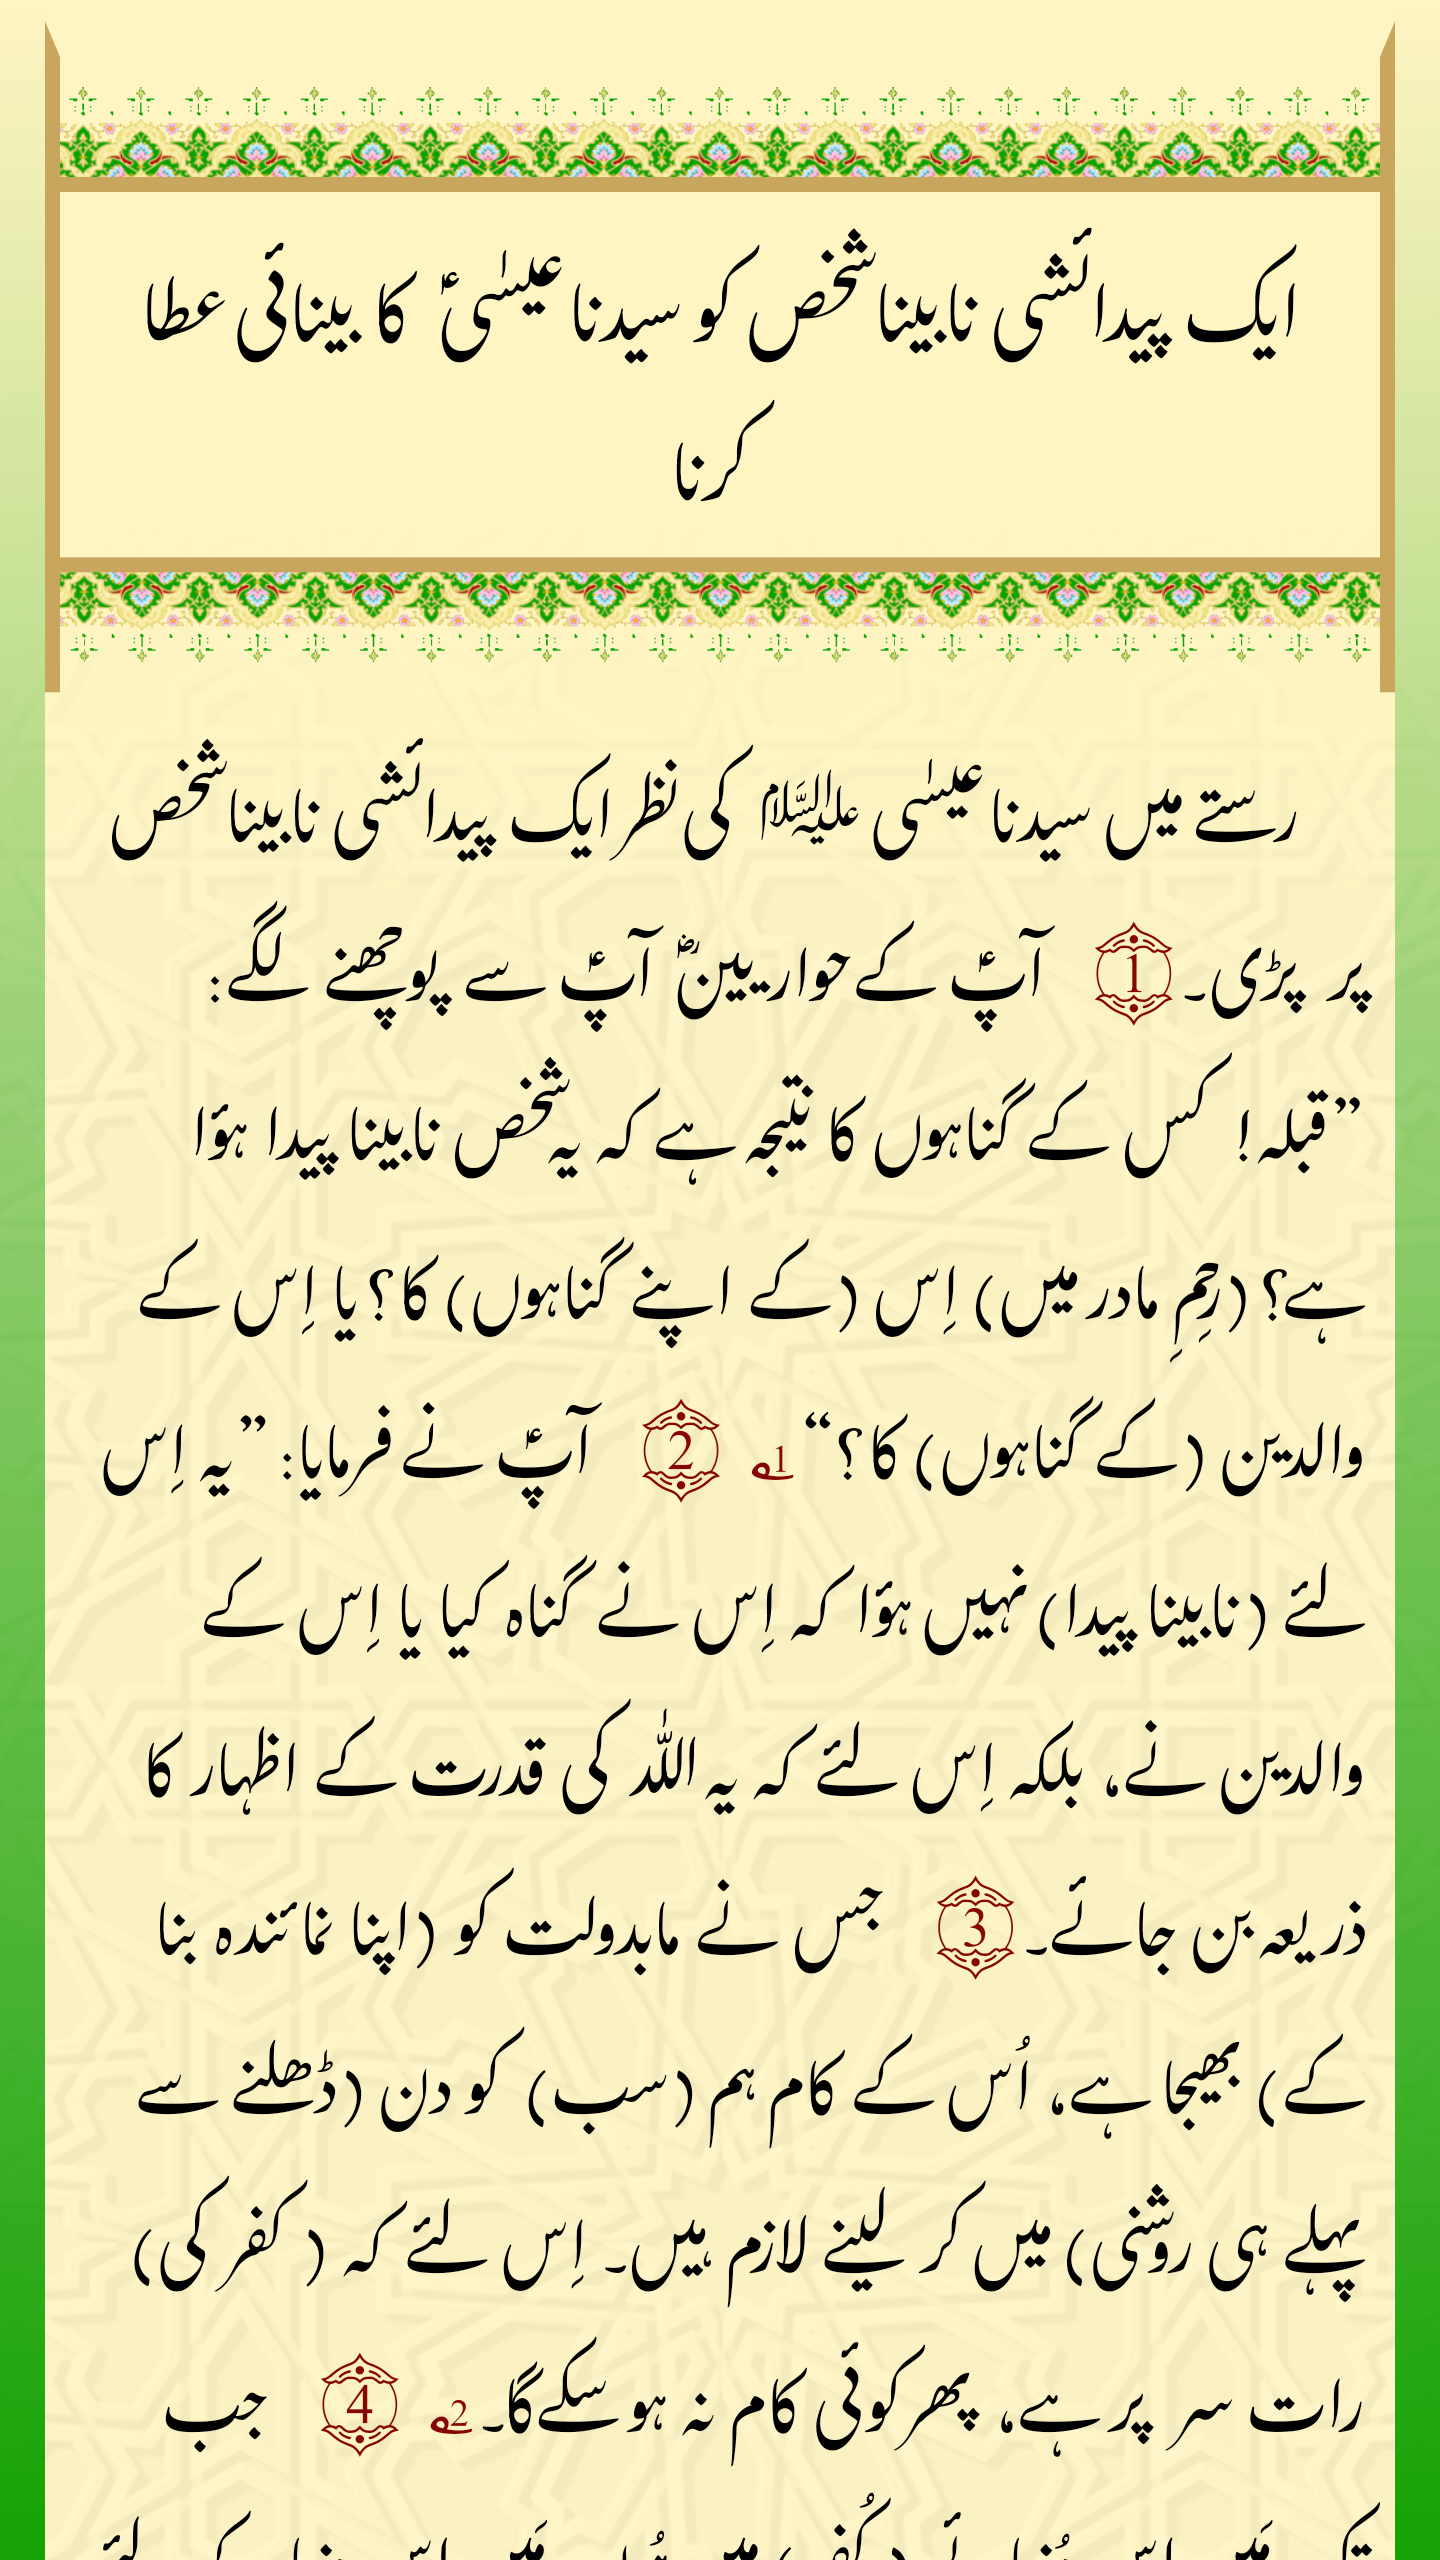 ایک پیدائشی نابینا شخص کو سیدنا عیسٰیؑ کا بینائی عطا
کرنا
رستے میں سیدنا عیسٰی علیہ السلام کی نظر ایک پیدائشی نابینا شخص
پر پڑی۔ 1 آپؑ کے حواریینؓ آپؑ سے پوچھنے لگے:
”قبلہ! کس کے گناہوں کا نتیجہ ہے کہ یہ شخص نابینا پیدا ہؤا
ہے؟ (رحِمِ مادر میں) اِس (کے اپنے گناہوں) کا؟ یا اِس کے
والدین (کے گناہوں) کا؟“ 1؎ 2 آپؑ نے فرمایا: ”یہ اِس
لئے (نابینا پیدا) نہیں ہؤا کہ اِس نے گناہ کیا یا اِس کے
والدین نے، بلکہ اِس لئے کہ یہ اللہ کی قدرت کے اظہار کا
ذریعہ بن جائے۔ 3 جس نے مابدولت کو (اپنا نمائندہ بنا
کے) بھیجا ہے، اُس کے کام ہم (سب) کو دن (ڈھلنے سے
پہلے ہی روشنی) میں کر لینے لازم ہیں۔ اِس لئے کہ (کفر کی)
رات سر پر ہے، پھر کوئی کام نہ ہو سکے گا۔ 2؎ 4 جب